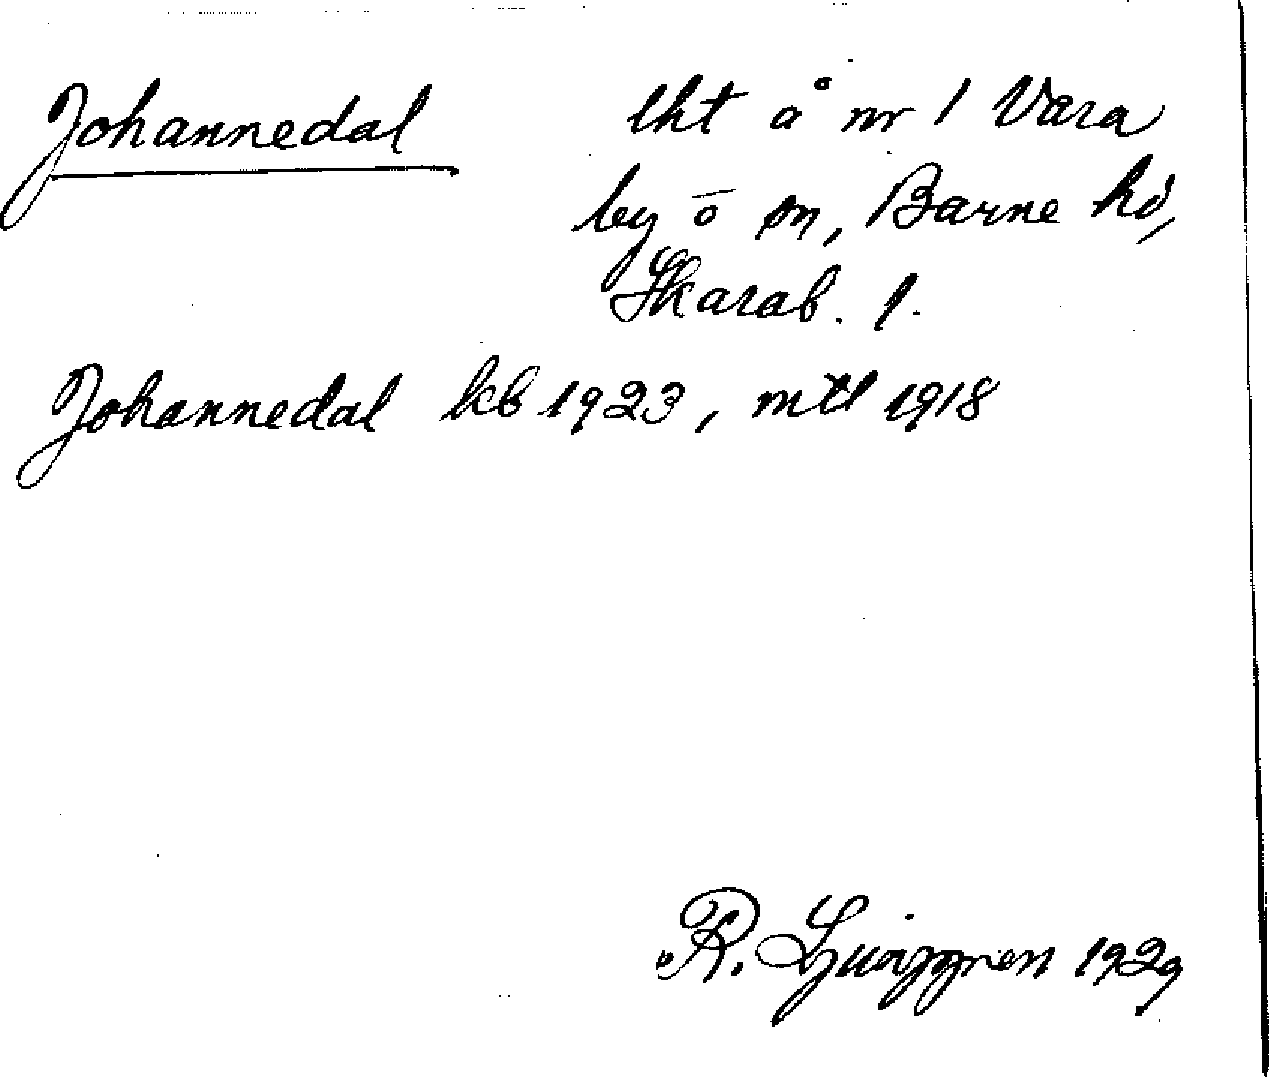 Johannedal lht å nr 1 Vara
by o sn, Barne hd,
Skarab. l.
Johannedal kb 1923, mtl 1918
R. Ljunggren 1929